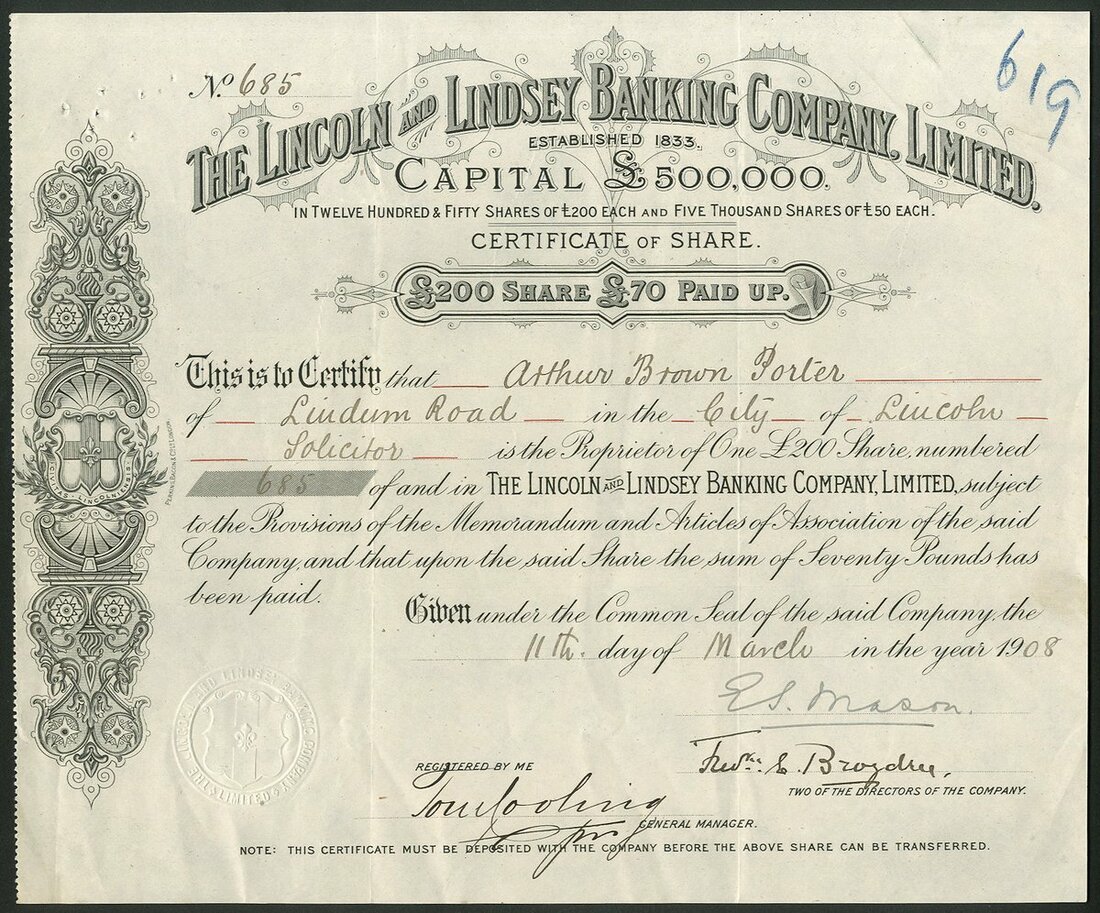 No. 685
619
THE LINCOLN AND LINDSEY BANKING COMPANY, LIMITED.
ESTABLISHED 1833.
CAPITAL £500,000.
IN TWELVE HUNDRED & FIFTY SHARES OF £200 EACH AND FIVE THOUSAND SHARES OF £50 EACH.
CERTIFICATE OF SHARE.
£200 SHARE £70 PAID UP.
This is to Certify that Arthur Brown Porter
of Lindum Road in the City of Lincoln
Solicitor is the Proprietor of One £200 Share, numbered
685 of and in THE LINCOLN AND LINDSEY BANKING COMPANY, LIMITED, subject
to the Provisions of the Memorandum and Articles of Association of the said
Company, and that upon the said Share the sum of Seventy Pounds has
been paid.
Given under the Common Seal of the said Company the
11th. day of March in the year 1908
E S. Mason.
REGISTERED BY ME
TWO OF THE DIRECTORS OF THE COMPANY.
GENERAL MANAGER.
NOTE: THIS CERTIFICATE MUST BE DEPOSITED WITH THE COMPANY BEFORE THE ABOVE SHARE CAN BE TRANSFERRED.
CIVITAS LINCOLNIENSIS
PERKINS, BACON & CO LD LONDON.
THE LINCOLN AND LINDSEY BANKING COMPANY LIMITED